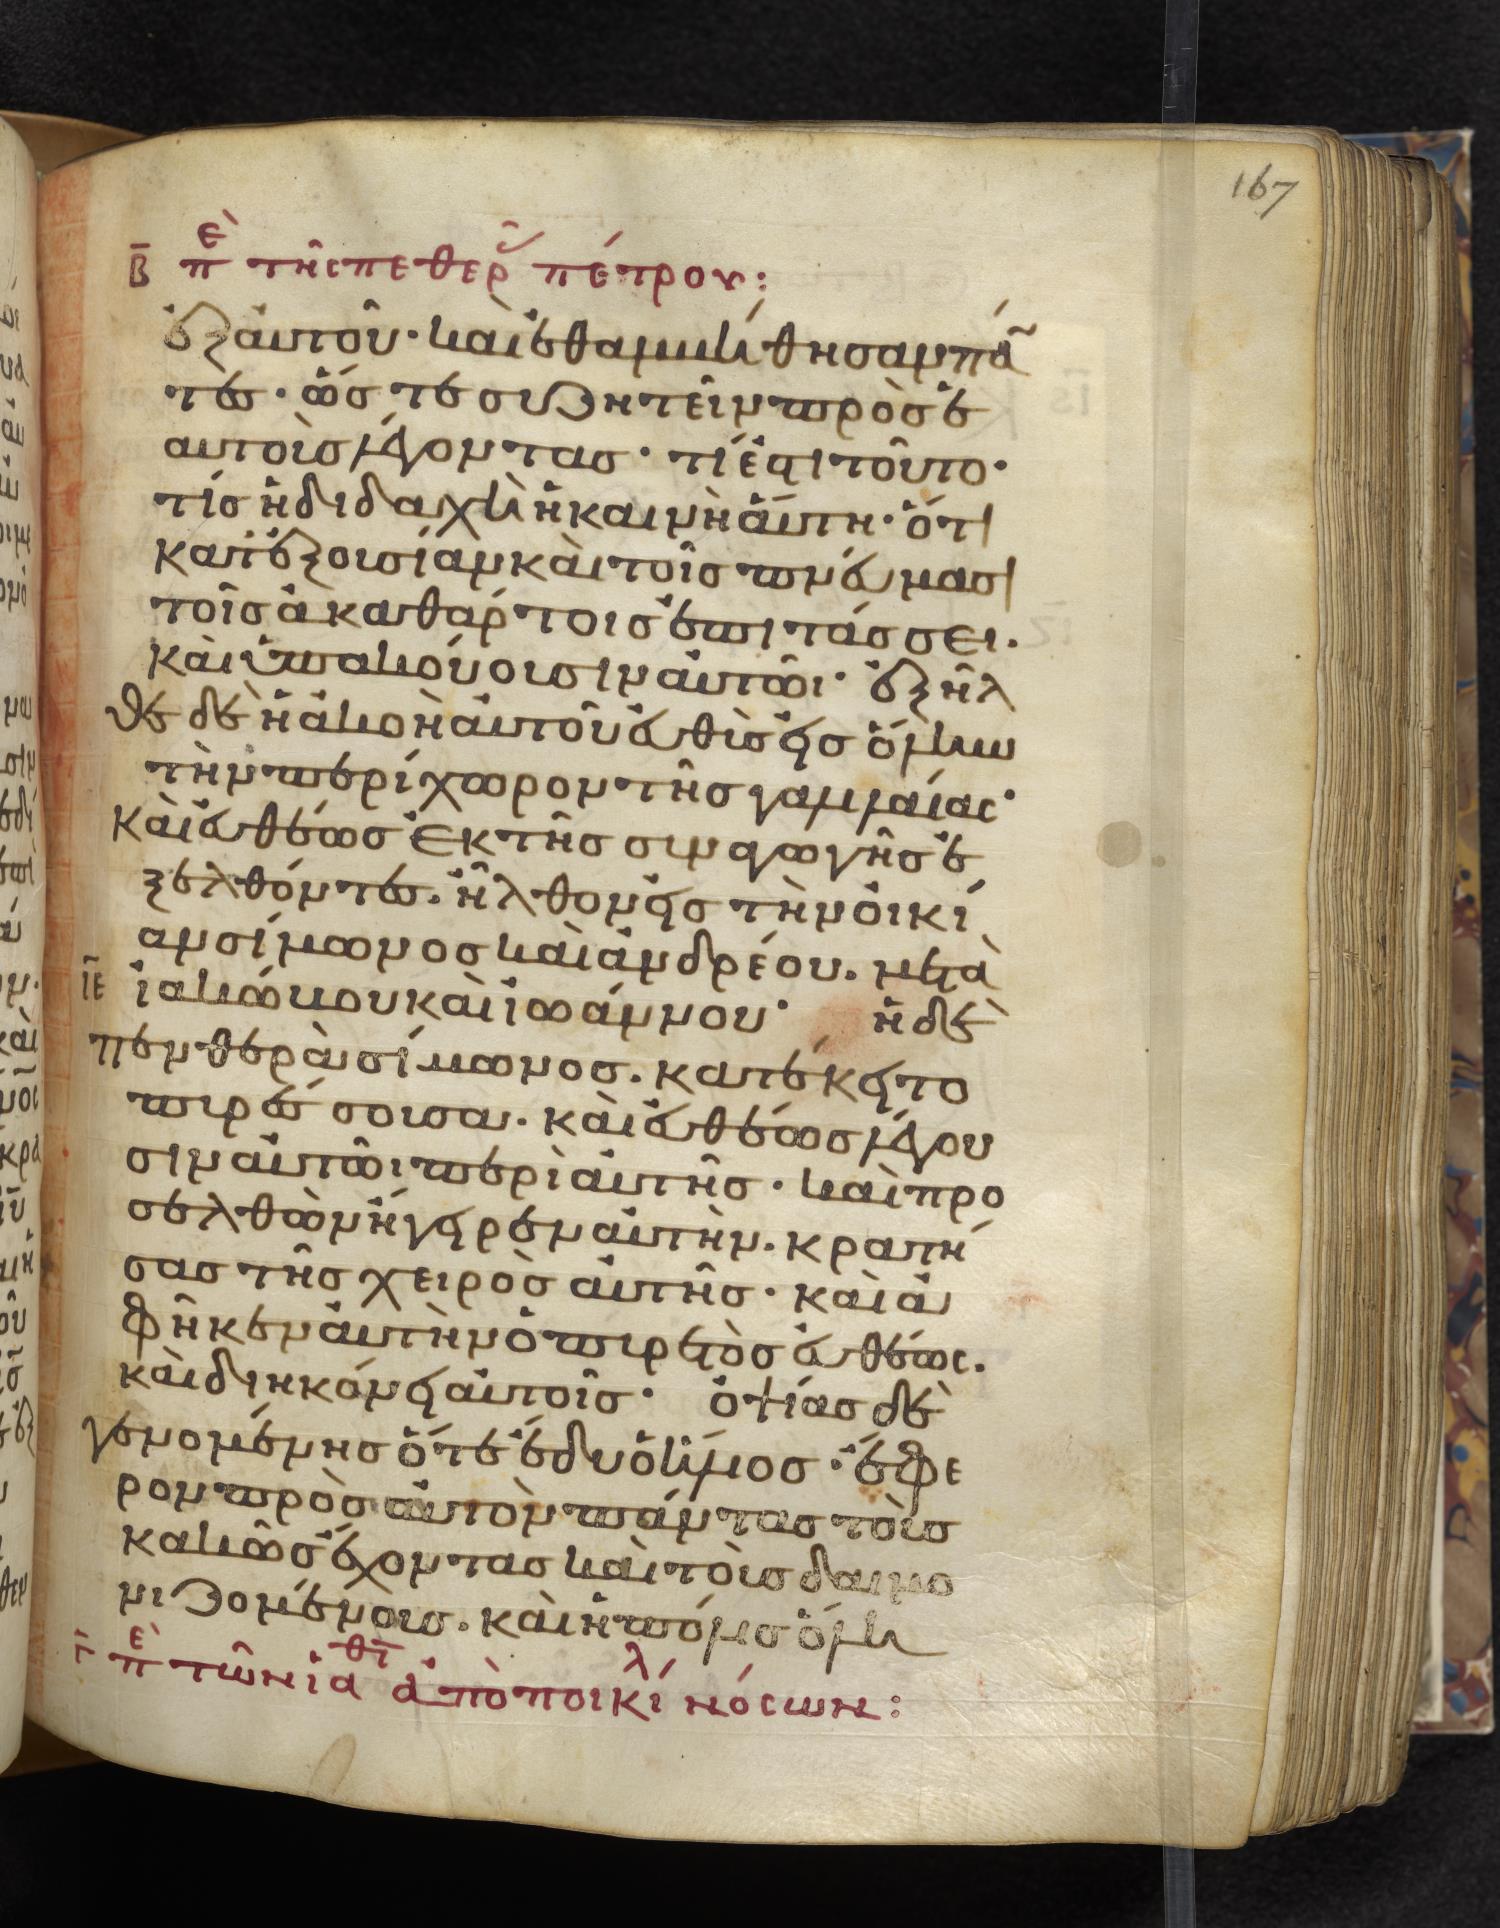 167
Β̄ πὲ τῆς πεθερᾶς πέτρου:
ἐξ αὐτοῦ· καὶ ἐθαμβήθησαν πά
τες· ὥστε συζητεῖν πρὸς ἑ
αυτοὺς λέγοντας· τί ἐστι τοῦτο·
τίς ἡ διδαχὴ ἡ καινὴ ἅυτη· ὅτι
κατ ἐξουσίαν καὶ τοῖς πνεύμασι
τοῖς ἀκαθάρτοις ἐπιτάσσει.
καὶ ὑπακούουσιν αὐτῶι· ἐξῆλ
θε δὲ ἡ ἀκοὴ αὐτοῦ ἐυθὺς εἰς ὅλην
τὴν περίχωρον τῆς γαλιλαίας·
καὶ ἐυθέως ἐκ τῆς συναγωγῆς ἐ
ξελθόντες. ἦλθον εἰς τὴν οἰκί
αν σίμωνος καὶ ἀνδρέου. μετὰ
ῙΕ ἰακώβου καὶ ἰωάννου· ἡ δὲ
πενθερὰ σίμωνος. κατέκειτο
πυρέσσουσα. καὶ ἐυθέως λέγου
σιν αὐτῶι περὶ αὐτῆς· καὶ προ
σελθὼν ἤγειρεν αὐτὴν. κρατή
σας τῆς χειρὸς αὐτῆς· καὶ ἀ
φῆκεν αὐτὴν ὁ πυρετὸς ἐυθέως.
καὶ διηκόνει αὐτοῖς· ὀψίας δὲ
γενομένης ὅτε ἔδυ ὁ ἥλιος· ἔφε
ρον πρὸς αὐτὸν πάντας τοὺς
κακῶς ἔχοντας καὶ τοὺς δαιμο
νιζομένους. καὶ ἡ πόλις ὅλη
Γ̄ πὲ τῶν ἰαθτ ἀπὸ ποικίλ νόσων: